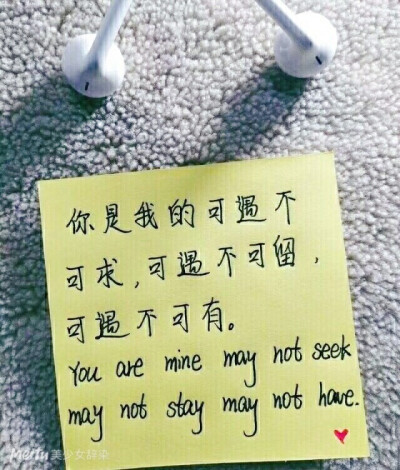 你是我的可遇不
可求,可遇不可留,
可遇不可有。
You are mine may not seek
may not stay may not have.
Meitu 美少女辞染